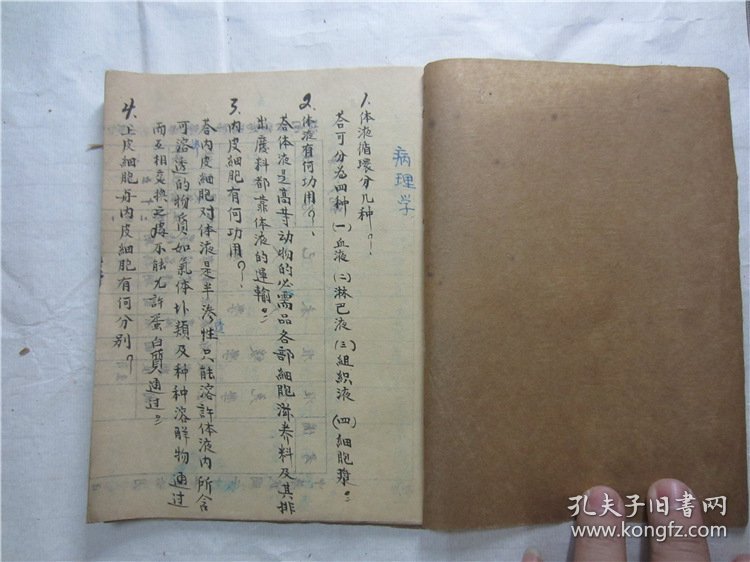 病理学
1. 体液循環分几种?
答可分为四种 (一)血液 (二)淋巴液 (三)組織液 (四)細胞漿。
2. 体液有何功用?
答体液是高等动物的必需品各部細胞滋养料及其排
出廢料都靠体液的運輸。
3. 內皮細胞有何功用?
答內皮細胞对体液是半滲性只能溶許体液内所含
可溶透的物质如氣体圤類及种种溶解物通过
而互相交换之 不能允許蛋白質通过。
4. 上皮細胞与內皮細胞有何分别?
孔夫子旧书网
kongfz.com